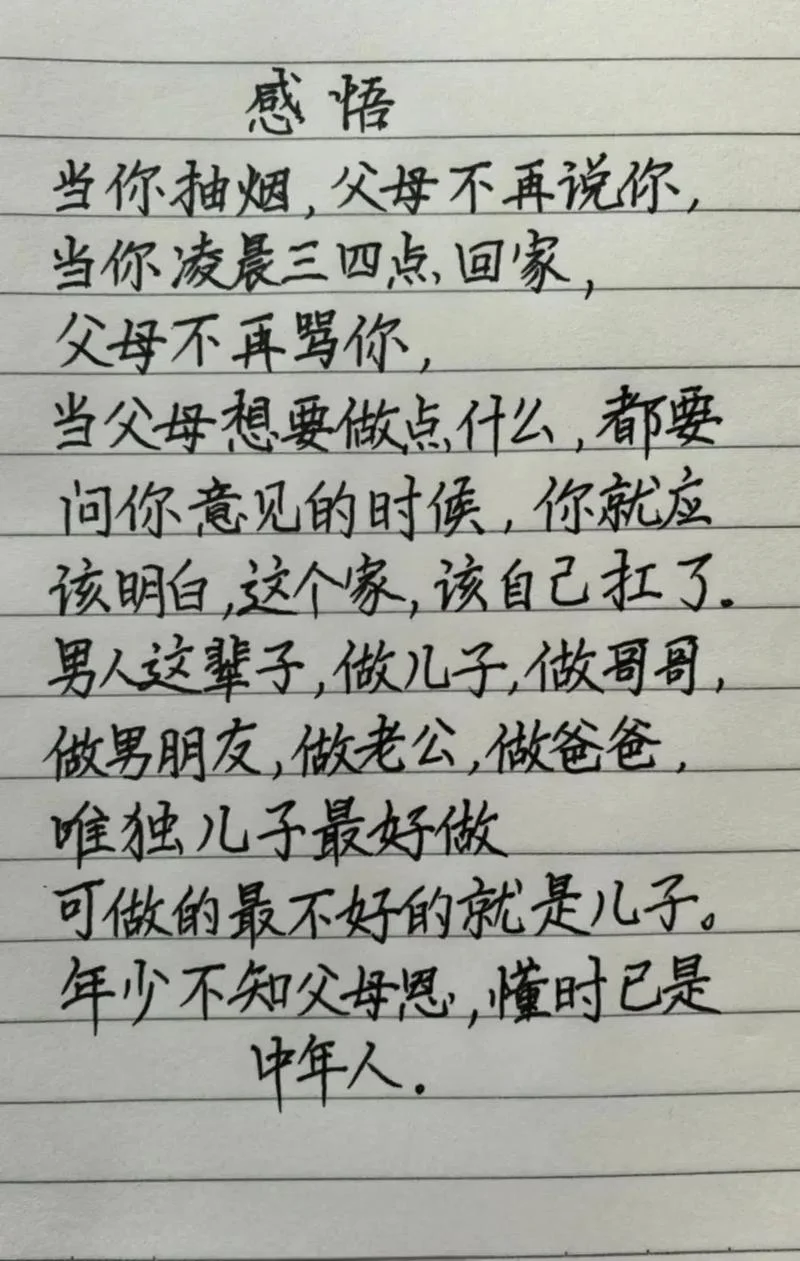 感悟
当你抽烟,父母不再说你,
当你凌晨三四点回家,
父母不再骂你,
当父母想要做点什么,都要
问你意见的时候,你就应
该明白,这个家,该自己扛了.
男人这辈子,做儿子,做哥哥,
做男朋友,做老公,做爸爸,
唯独儿子最好做
可做的最不好的就是儿子。
年少不知父母恩,懂时已是
中年人.